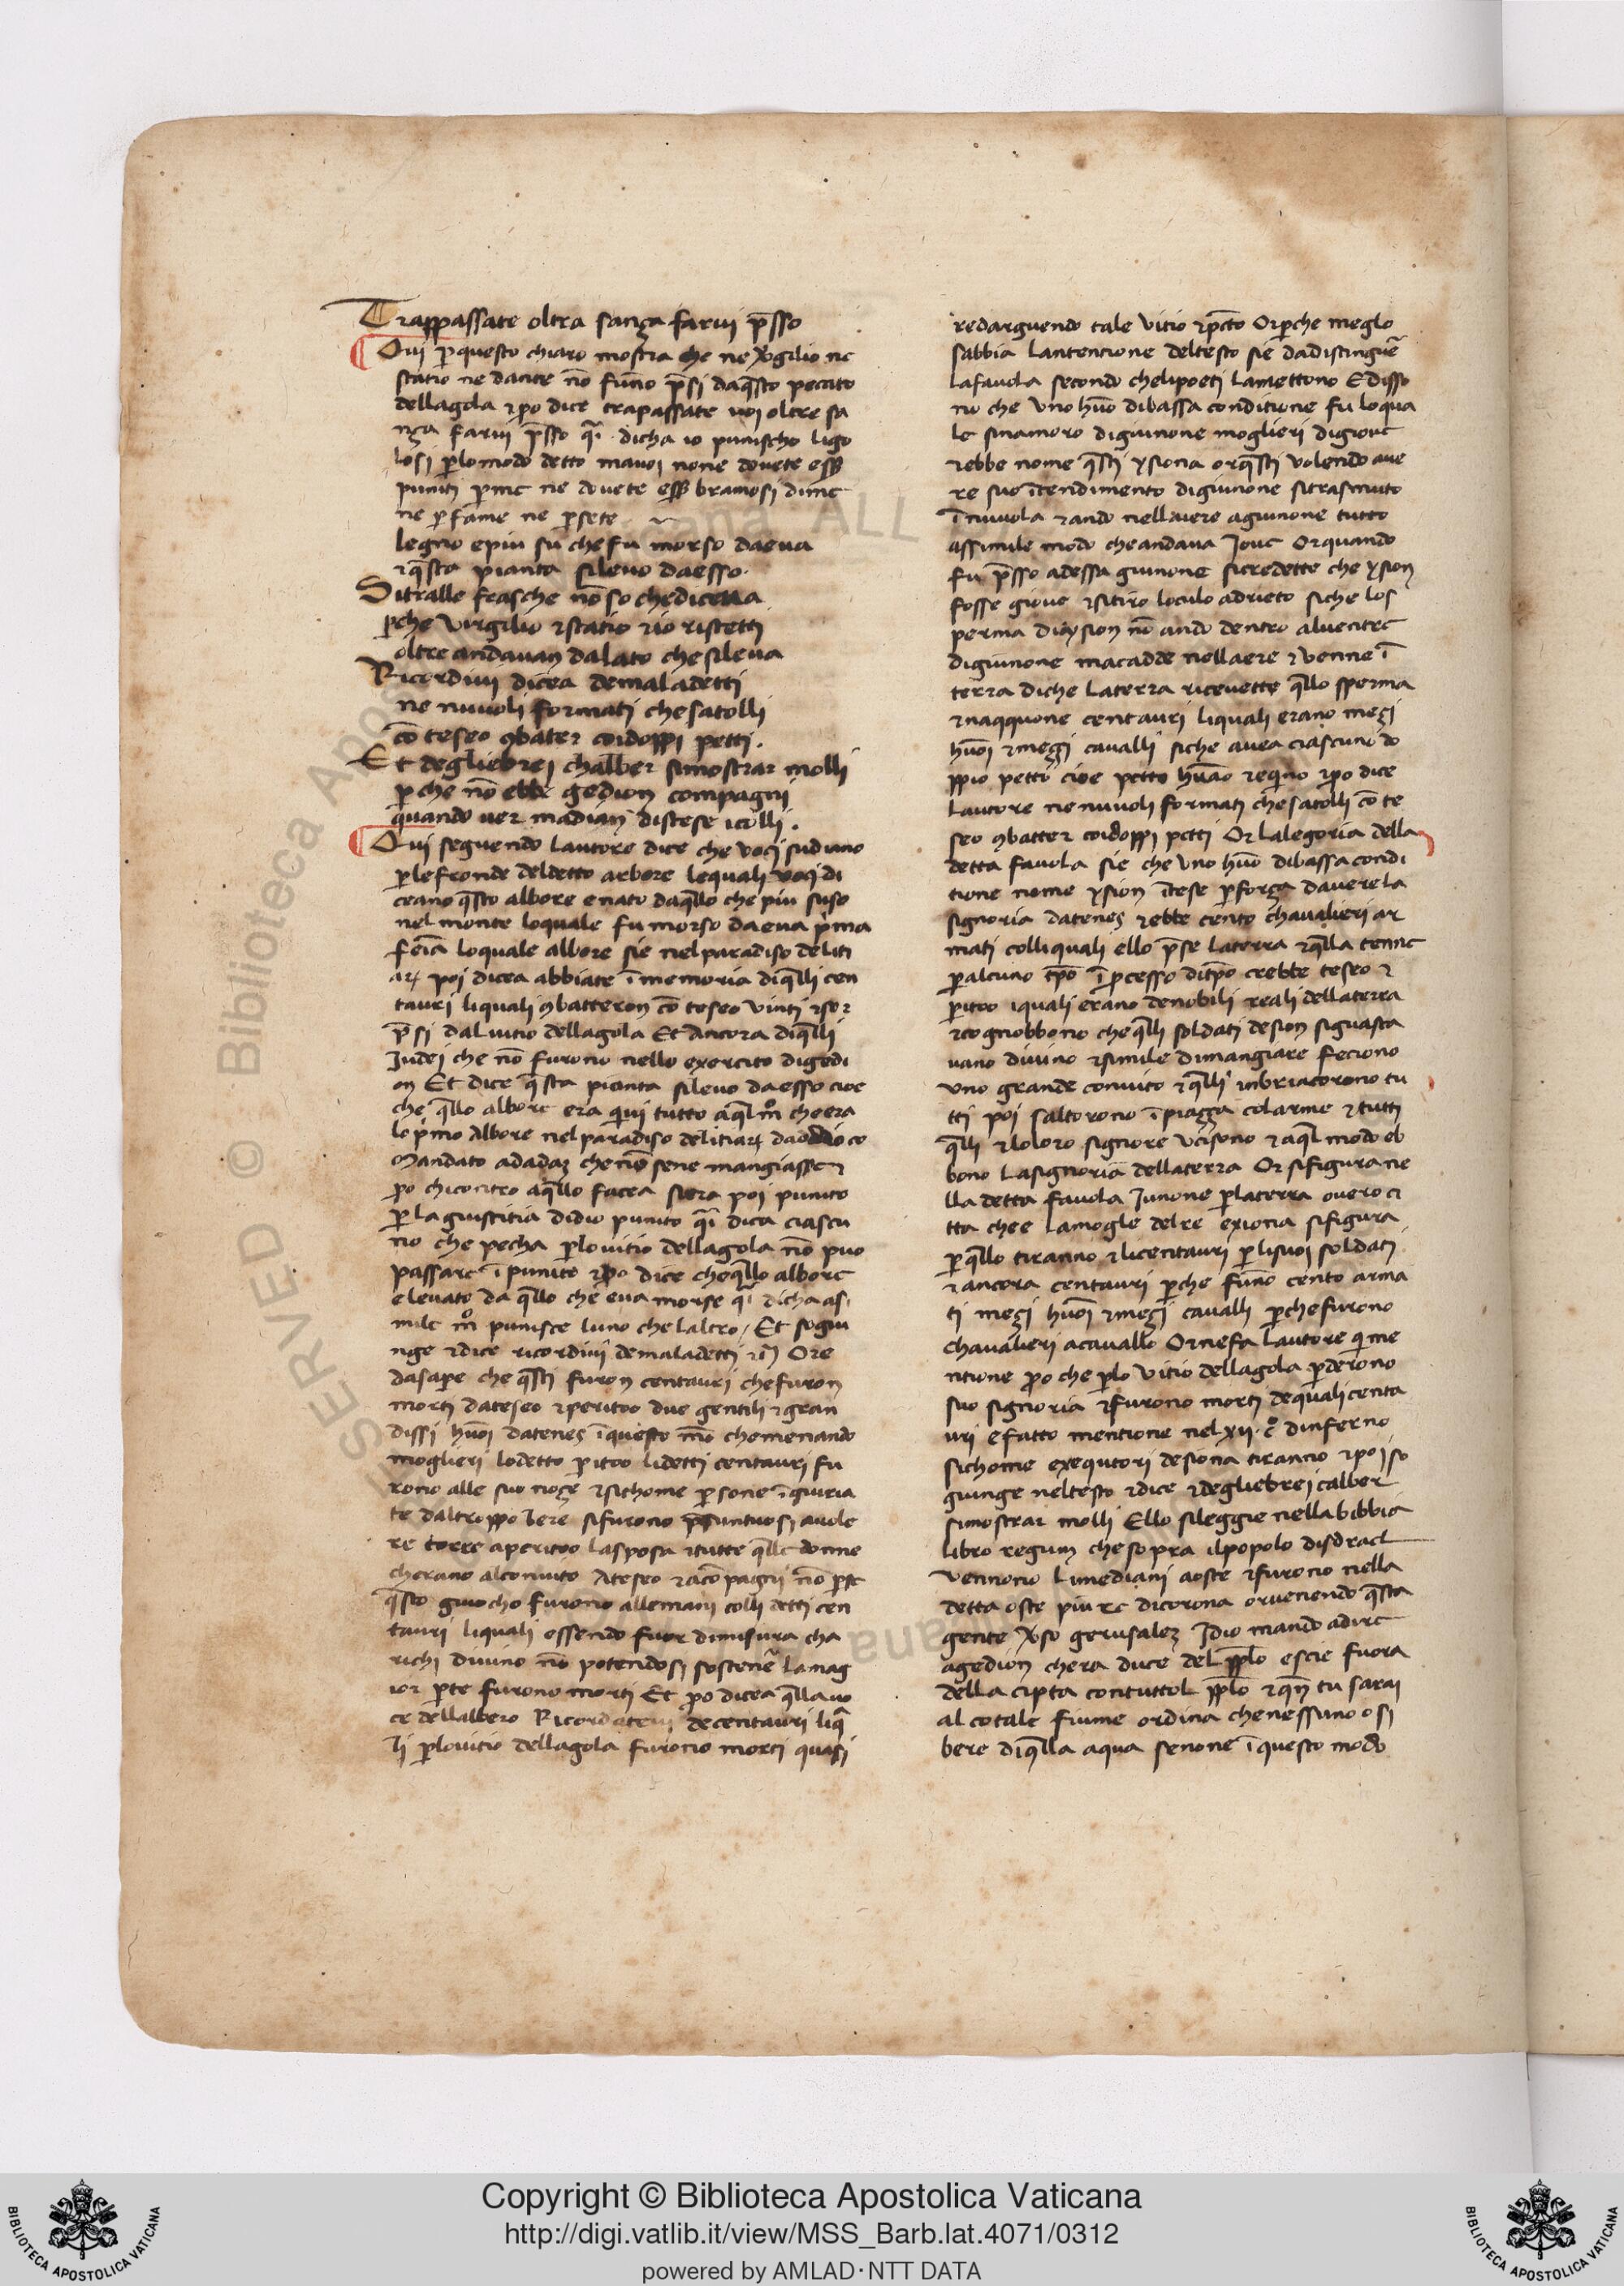 Trappassate oltra sança farui p̄sso
Qui ꝑ questo chiaro mostra che ne v̄gilio ne
statio ne dante nō furno p̄si da q̄sto peccato
della gola ⁊ ꝑo dice trapassate uoi oltre sa
nça farui p̄sso q̄i dicha io punischo li go
losi ꝑ lo modo detto ma uoi none douete ess̄
puniti ꝑ me ne douete ess̄ bramosi di me
ne ꝑ fame ne ꝑ sete
legno e piu su che fu morso da eua
⁊ q̄sta pianta si leuo da esso.
Si tralle frasche nō so che dicea
ꝑche virgilio ⁊ statio ⁊ io ristetti
oltre andauan dalato che si leua
Ricordiui dicea de maladetti
ne nuuoli formati che satolli
cō teseo ꝯbater coi doppi petti.
Et degli ebrei chal ber si mostrar molli
ꝑ che nō ebbe gedion compagni
quando uer madian discese i colli.
Qui seguendo lautore dice che voci sudiuano
ꝑ le fronde del detto arbore le quali voci di
ceano q̄sto albore e nato da q̄llo che piu suso
nel monte lo quale fu morso da eua p̄ma
femīa lo quale albore sie nel paradiso deliti
aꝝ poi dicea abbiate ī memoria di q̄lli cen
tauri li quali ꝯbatteron cō teseo vinti ⁊ sor
p̄si dal uitio della gola Et Ancora di q̄lli
Iudei che nō furono nello exercito di gedi
on Et dice q̄sta pianta si leuo da esso cioe
che q̄llo albore era quiui tutto a q̄l mō che era
lo p̄mo Albore nel paradiso delitiaꝝ da dio co
mandato ad adaꝫ che nō sene mangiasse ⁊
ꝑo chi contro a q̄llo facea sera poi punito
ꝑ la giustitia di dio punito q̄i dica ciascu
no che pecha ꝑ lo uitio della gola nō puo
passare ī punito ⁊ ꝑo dice che q̄llo albore
e leuato da q̄llo che eua morse q̄i dicha a si
mile mō punisce luno che laltro / Et sogiu
nge ⁊ dice ricordiui de maladetti ⁊c̄ Ore
da saꝑe che q̄sti furon centauri che furon
morti da teseo ⁊ peritoo due gentili ⁊ gran
dissi huōi datenes ī questo mō che menando
moglieri lo detto ꝑitoo li detti centauri fu
rono alle suo noze ⁊ sichome ꝑsone ī giuria
te dal troppo bere si furono p̄suntuosi a uole
re torre a peritoo la sposa ⁊ tutte q̄lle donne
cherano al conuito A teseo ⁊ a cōpagni nō parue
q̄sto giuocho furono alle mani colli detti cen
tauri li quali essendo fuor di misura cha
richi di uino nō potendosi sostenē la mag
ior ꝑte furono morti Et ꝑo dicea q̄lla uo
ce dellalbero Ricordateui de centauri li q̄
li ꝑ lo uitio della gola furono morti quasi
redarguendo tale vitio ⁊ p̄cto Or ꝑche meglo
sabbia lantencione del testo sie da distinguē
la fauola secondo che li poeti la mettono E disso
no che vno huō di bassa conditione fu lo qua
le sinamoro di giunone moglieri di gioue
⁊ ebbe nome q̄sti ysiona or q̄sti volendo aue
re suo ītendimento di giunone si trasmuto
ī nuuola ⁊ ando nellaiere a giunone tutto
assimile modo che andaua Joue Or quando
fu p̄sso ad essa giunone si credette che ysion
fosse gioue ⁊ si tiro lo culo adrieto siche lo s
perma di ysion nō ando dentro al uentre
di giunone ma cadde nellaere ⁊ venne ī
terra di che la terra riceuette q̄llo sperma
⁊ naqquone centauri li quali erano mezi
huōi ⁊ mezi caualli siche auea ciascuno do
ppio petti cioe petto huāo ⁊ equino ⁊ ꝑo dice
lautore ne nuuoli formati che satolli cō te
seo ꝯbatter coi doppi petti Or lalegoria della
detta fauola sie che vno huō di bassa condi
tione nome ysion ītese ꝑ força dauere la
signoria datenes ⁊ ebbe cento chaualieri ar
mati colli quali ello p̄se la terra ⁊ q̄lla tenne
ꝑ alcuno tp̄o ī ꝓcesso di tp̄o crebbe teseo ⁊
ꝑitoo i quali erano de nobili reali della terra
⁊ cognobbono che q̄lli soldati desion si guasta
uano di uino ⁊ simile di mangiare feciono
vno grande conuito ⁊ q̄lli inbriacorono tu
tti poi saltorono ī piazza colarme ⁊ tutti
q̄lli ⁊ lo loro signore vcisono ⁊ a q̄l modo eb
bono la signoria della terra Or si figura ne
lla detta fauola Iunone ꝑ la terra ouero ci
tta che e la mogle del re exiona si figura
ꝑ q̄llo tiranno ⁊ li centauri ꝑ li suoi soldati
⁊ ancora centauri ꝑche furno cento arma
ti mezi huōi ⁊ mezi caualli ꝑche furono
chaualieri a cauallo Or ne fa lautore qui me
ntione ꝑo che ꝑ lo vitio della gola ꝑderono
suo signoria ⁊ furono morti de quali centa
uri e fatto mentione nel xii. cō dinferno
sichome exequtori desiona tiranno ⁊ poi so
giunge nel testo ⁊ dice ⁊ degli ebrei cal ber
si mostrar molli Ello si leggie nella bibbia
libro regum che sopra il popolo disdrael
vennono li mediani a oste ⁊ furono nella
detta oste piu re di corona or uenendo q̄sta
gente v̄so gerusaleꝫ Idio mando a dire
a gedion chera duce del pp̄lo escie fuora
della cipta con tuttol pp̄lo ⁊ qn̄ tu sarai
al cotale fiume ordina che nessuno osi
bere di q̄lla aqua se none ī questo modo
Copyright © Biblioteca Apostolica Vaticana
http://digi.vatlib.it/view/MSS_Barb.lat.4071/0312
powered by AMLAD·NTT DATA
BIBLIOTECA APOSTOLICA VATICANA
BIBLIOTECA APOSTOLICA VATICANA